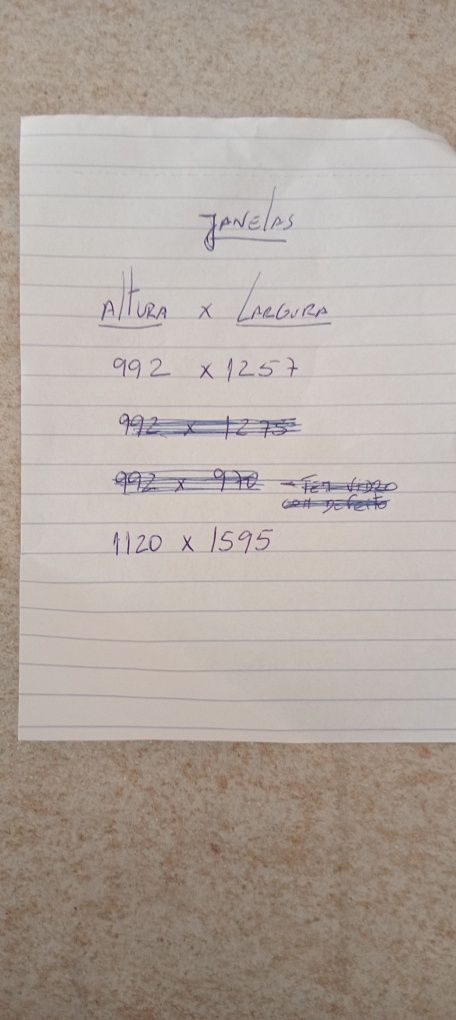 JANELAS
ALTURA x LARGURA
992 x 1257
992 x 1275
992 x 970 - TEM VIDRO
COM DEFEITO
1120 x 1595